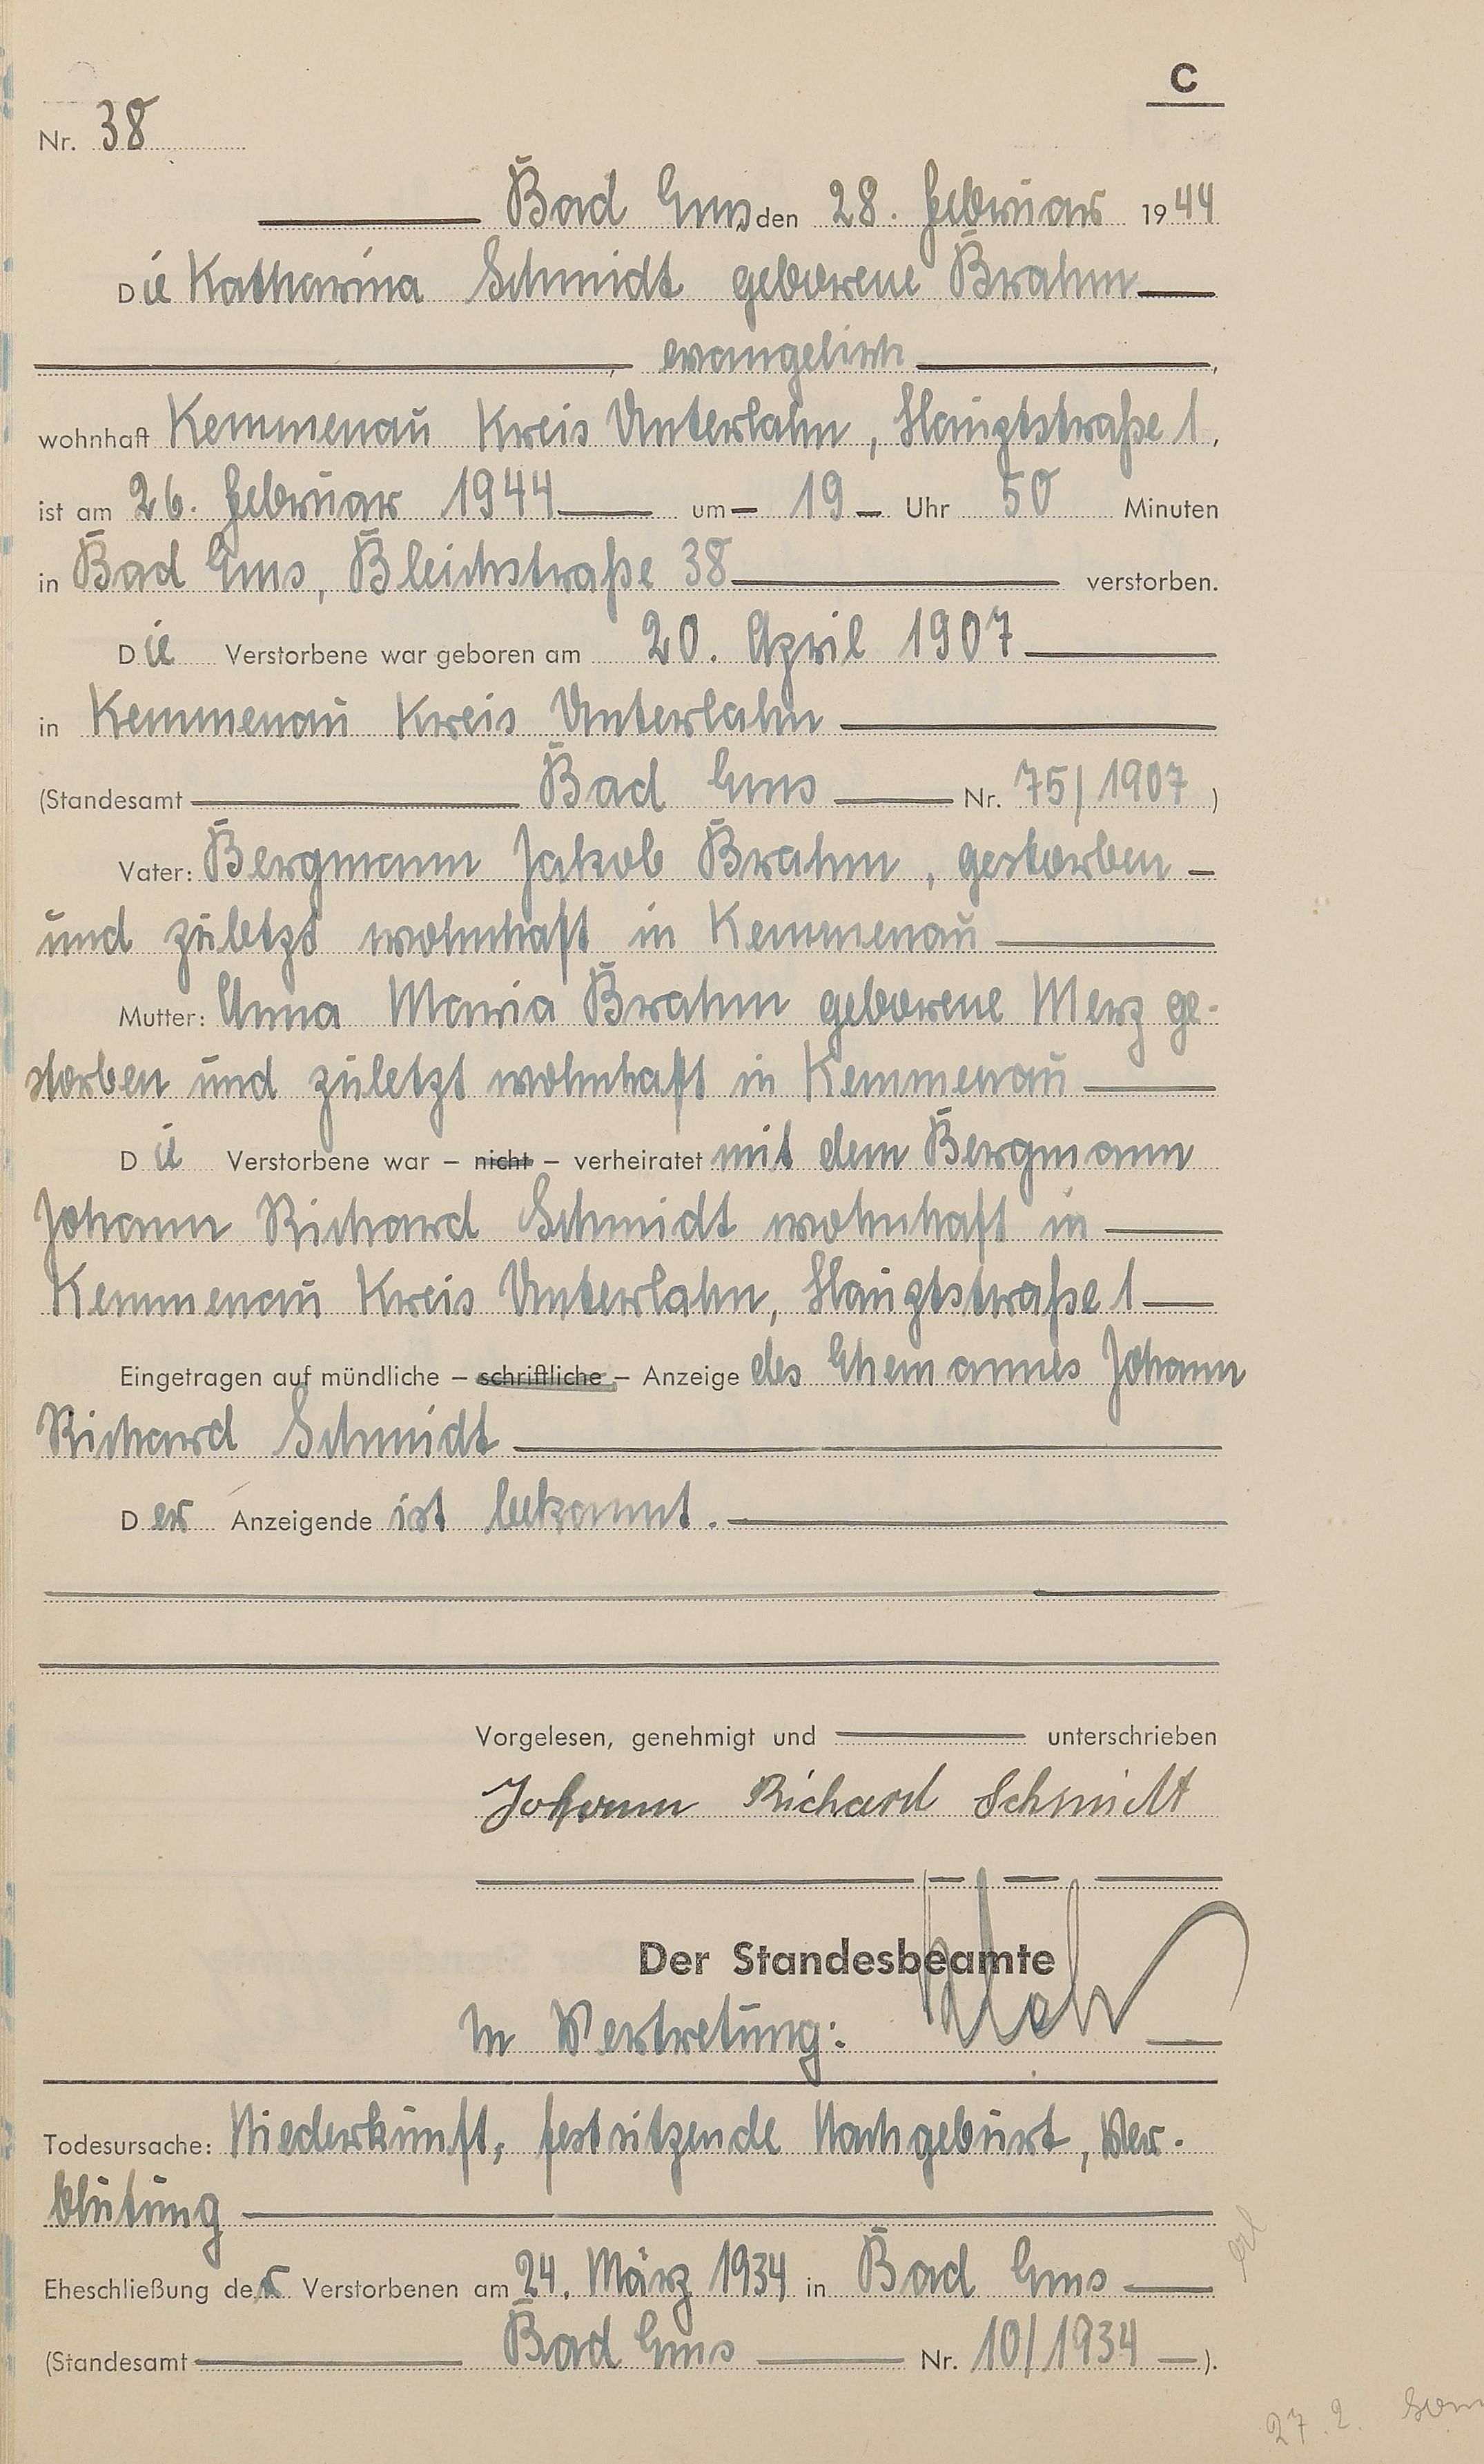 C
Nr. 38
Bad Ems, den 28. Februar 1944
Die Katharina Schmidt geborene Brahm
, evangelisch ,
wohnhaft Kemmenau Kreis Unterlahn, Hauptstraße 1,
ist am 26. Februar 1944 um 19 Uhr 50 Minuten
in Bad Ems, Bleichstraße 38 verstorben.
Die Verstorbene war geboren am 20. April 1907
in Kemmenau Kreis Unterlahn
(Standesamt Bad Ems Nr. 75/1907 )
Vater: Bergmann Jakob Brahm, gestorben
und zuletzt wohnhaft in Kemmenau
Mutter: Anna Maria Brahm geborene Merz ge-
storben und zuletzt wohnhaft in Kemmenau
Die Verstorbene war – nicht – verheiratet mit dem Bergmann
Johann Richard Schmidt wohnhaft in
Kemmenau Kreis Unterlahn, Hauptstraße 1
Eingetragen auf mündliche – schriftliche – Anzeige des Ehemannes Johann
Richard Schmidt
Der Anzeigende ist bekannt.
Vorgelesen, genehmigt und unterschrieben
Johann Richard Schmidt
Der Standesbeamte
In Vertretung:
Todesursache: Niederkunft, festsitzende Nachgeburt, Ver-
blutung
erl
Eheschließung der Verstorbenen am 24. März 1934 in Bad Ems
(Standesamt Bad Ems Nr. 10/1934 ).
27. 2.